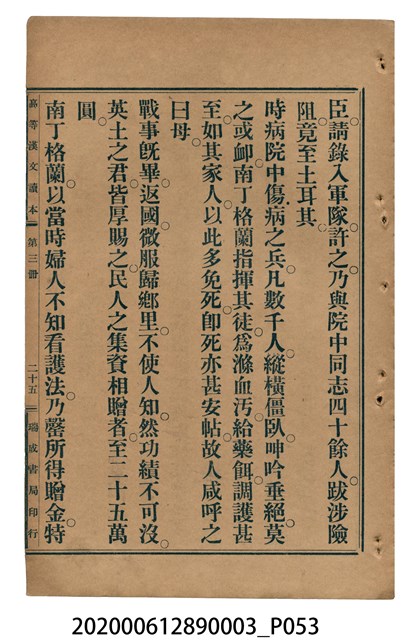 臣。請錄入軍隊。許之。乃與院中同志四十餘人。跋涉險
阻。竟至土耳其。
時病院中傷病之兵。凡數千人。縱橫僵臥。呻吟垂絕。莫
之或卹。南丁格蘭指揮其徒。爲滌血汚。給藥餌。調護甚
至。如其家人。以此多免死。卽死亦甚安帖。故人咸呼之
曰母。
戰事旣畢。返國。微服歸鄉里。不使人知。然功績不可沒。
英土之君。皆厚賜之。民人之集資相贈者。至二十五萬
圓。
南丁格蘭以當時婦人不知看護法。乃罄所得贈金。特
高等漢文讀本 第三册 二十五 瑞成書局印行
202000612890003_P053